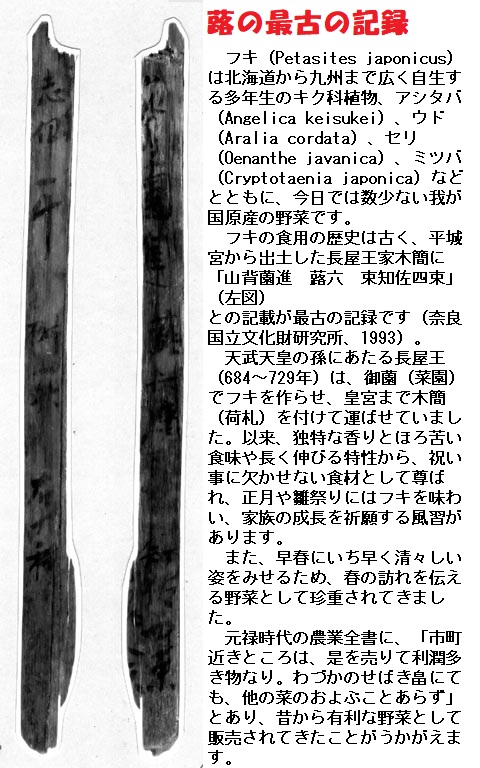 蕗の最古の記録
フキ（Petasites japonicus）
は北海道から九州まで広く自生す
る多年生のキク科植物、アシタバ
（Angelica keisukei）、ウド
（Aralia cordata）、セリ
（Oenanthe javanica）、ミツバ
（Cryptotaenia japonica）など
とともに、今日では数少ない我が
国原産の野菜です。
フキの食用の歴史は古く、平城
宮から出土した長屋王家木簡に
「山背薗進　蕗六　束知佐四束」
（左図）
との記載が最古の記録です（奈良
国立文化財研究所、1993）。
天武天皇の孫にあたる長屋王
（684～729年）は、御薗（菜園）
でフキを作らせ、皇宮まで木簡
（荷札）を付けて運ばせていまし
た。以来、独特な香りとほろ苦い
食味や長く伸びる特性から、祝い
事に欠かせない食材として尊ば
れ、正月や雛祭りにはフキを味わ
い、家族の成長を祈願する風習が
あります。
また、早春にいち早く清々しい
姿をみせるため、春の訪れを伝え
る野菜として珍重されてきまし
た。
元禄時代の農業全書に、「市町
近きところは、是を売りて利潤多
き物なり。わづかのせばき畠にて
も、他の菜のおよぶことあらず」
とあり、昔から有利な野菜として
販売されてきたことがうかがえま
す。